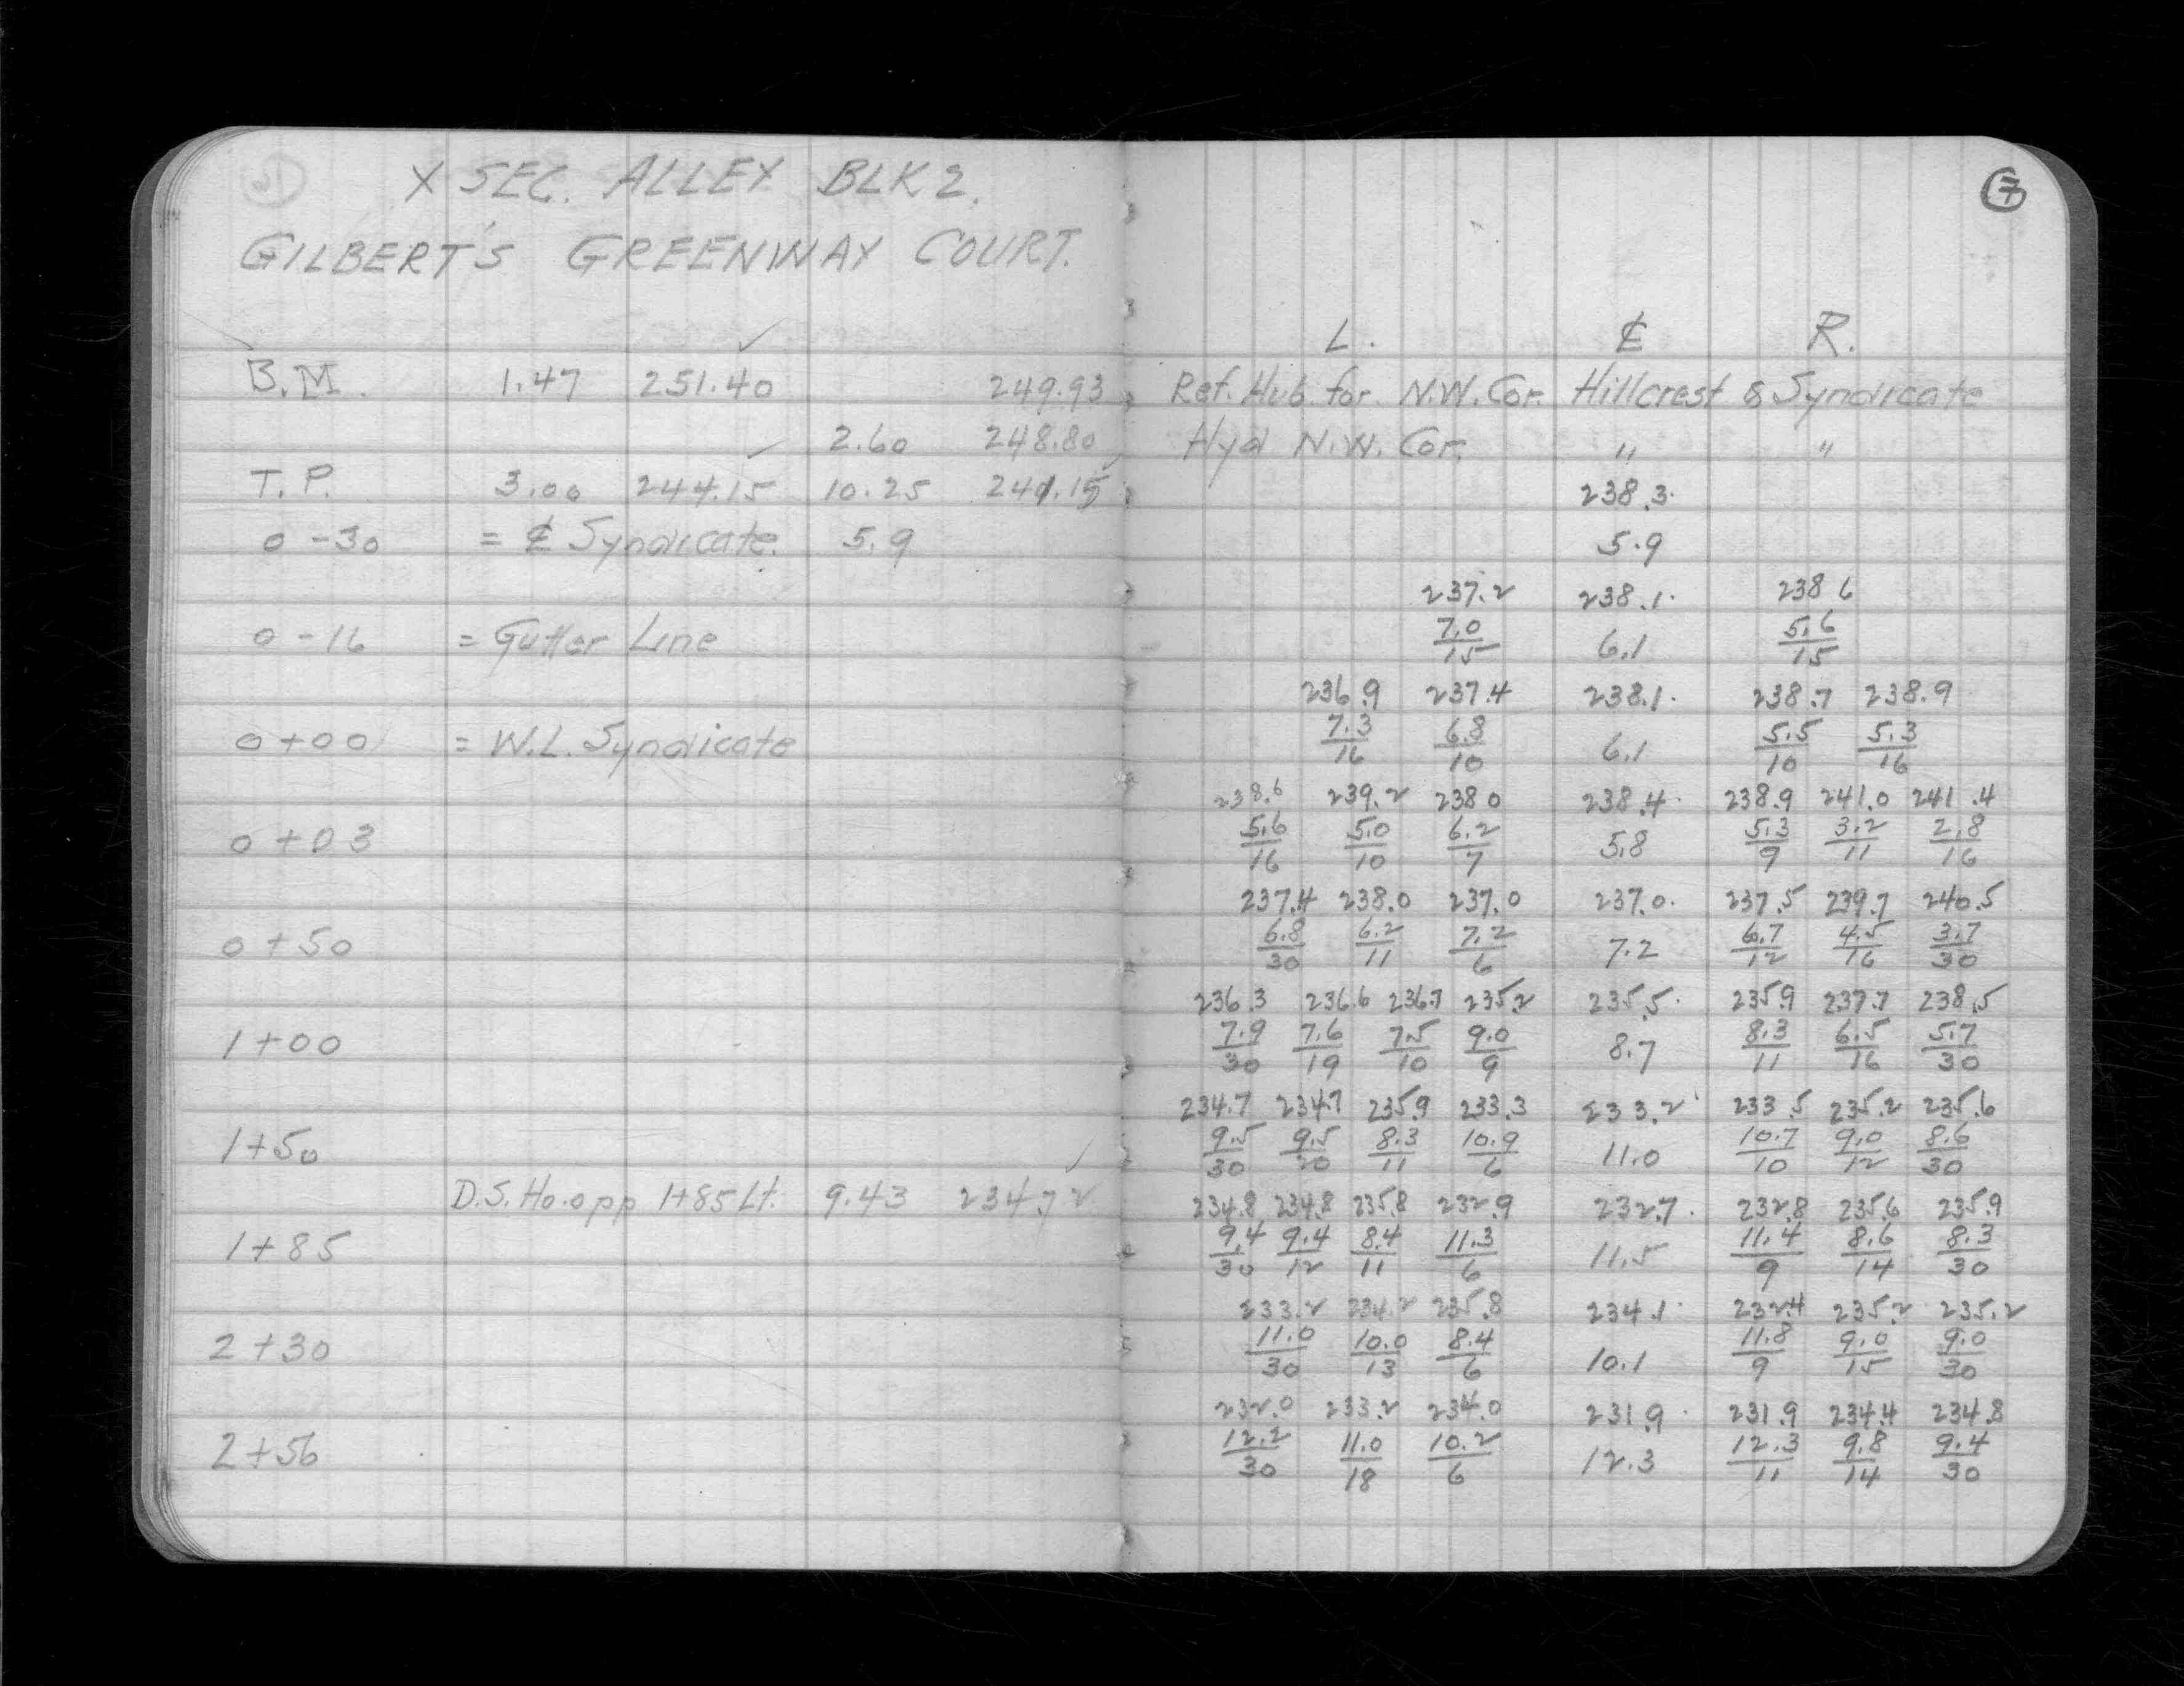 X SEC. ALLEY BLK 2.
GILBERT'S GREENWAY COURT.
B.M. 1.47 251.40 249.93
2.60 248.80
T.P. 3.00 244.15 10.25 241.15
0-30 = ℄ Syndicate. 5.9
0-16 = Gutter Line
0+00 = W.L. Syndicate
0+03
0+50
1+00
1+50
D.S. Ho. opp 1+85 Lt. 9.43 234.72
1+85
2+30
2+56
7
L. ℄ R.
Ref. Hub for N.W. Cor. Hillcrest & Syndicate
Hyd N.W. Cor. " "
238.3
5.9
237.2 238.1 238 6
7.0/15 6.1 5.6/15
236.9 237.4 238.1 238.7 238.9
7.3/16 6.8/10 6.1 5.5/10 5.3/16
238.6 239.2 238 0 238.4 238.9 241.0 241.4
5.6/16 5.0/10 6.2/7 5.8 5.3/9 3.2/11 2.8/16
237.4 238.0 237.0 237.0 237.5 239.7 240.5
6.8/30 6.2/11 7.2/6 7.2 6.7/12 4.5/16 3.7/30
236.3 236.6 236.7 235.2 235.5 235.9 237.7 238.5
7.9/30 7.6/19 7.5/10 9.0/9 8.7 8.3/11 6.5/16 5.7/30
234.7 234.7 235.9 233.3 233.2 233.5 235.2 235.6
9.5/30 9.5/20 8.3/11 10.9/6 11.0 10.7/10 9.0/12 8.6/30
234.8 234.8 235.8 232.9 232.7 232.8 235.6 235.9
9.4/30 9.4/12 8.4/11 11.3/6 11.5 11.4/9 8.6/14 8.3/30
233.2 234.2 235.8 234.1 232.4 235.2 235.2
11.0/30 10.0/13 8.4/6 10.1 11.8/9 9.0/15 9.0/30
232.0 233.2 234.0 231.9 231.9 234.4 234.8
12.2/30 11.0/18 10.2/6 12.3 12.3/11 9.8/14 9.4/30